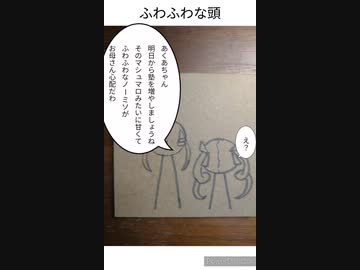 ふわふわな頭
あくあちゃん
明日から塾を増やしましょうね
そのマシュマロみたいに甘くて
ふわふわなノーミソが
お母さん心配だわ
え?